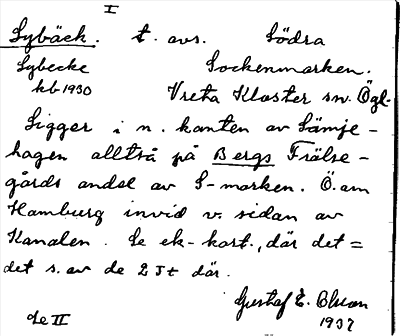 I
Sybäck. t. avs. Södra
Sybecke Sockenmarken.
kb 1930 Vreta Kloster sn. Ögl.
Ligger i n. kanten av Sämje-
hagen alltså på Bergs Frälse-
gårds andel av S-marken. Ö. om
Hamburg invid v. sidan av
Kanalen. Se ek-kart., där det =
det s. av de 2 St där.
Gustaf E. Olson
1937
Se II